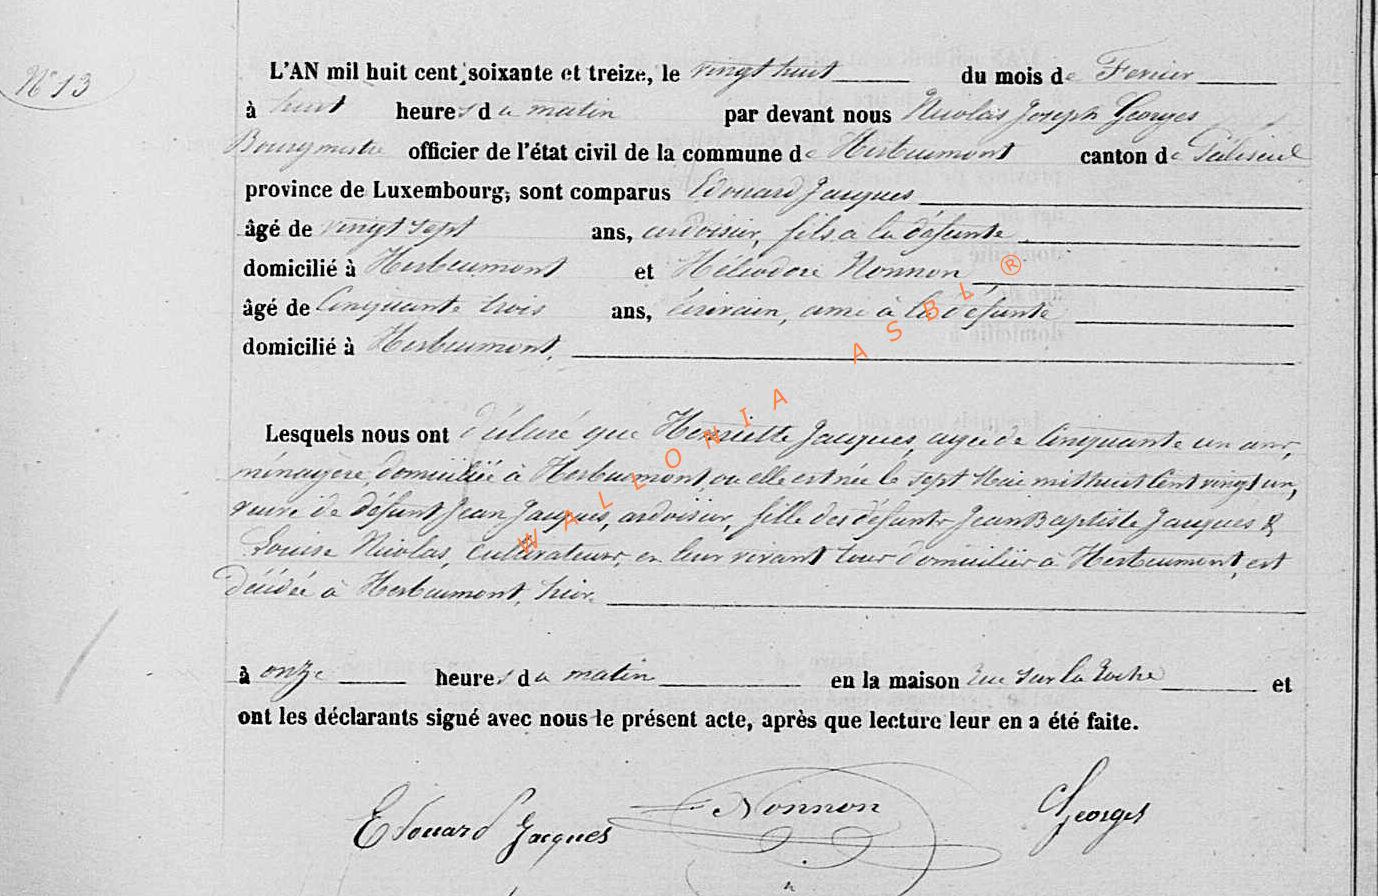 N° 13
L'AN mil huit cent soixante et treize, le vingt huit du mois de Fevrier
à huit heures du matin par devant nous Nicolas Joseph Georges
Bourgmestre officier de l'état civil de la commune de Herbeumont canton de Paliseul
province de Luxembourg, sont comparus Edouard Jacques
âgé de vingt sept ans, ardoisier, fils a la défunte
domicilié à Herbeumont et Héliodore Nonnon
âgé de Cinquante trois ans, écrivain, ami à la défunte
domicilié à Herbeumont.
Lesquels nous ont déclaré que Henriette Jacques, agée de Cinquante un ans,
ménagère, domiciliée à Herbeumont ou elle est née le sept Mai mil huit Cent vingt un,
veuve de défunt Jean Jacques, ardoisier, fille des défunts Jean Baptiste Jacques &
Louise Nicolas, Cultivateurs, en leur vivant tous domiciliés à Herbeumont, est
décédée à Herbeumont, hier
à onze heures du matin en la maison rue sur la Roche et
ont les déclarants signé avec nous le présent acte, après que lecture leur en a été faite.
Edouard Jacques Nonnon Georges
WALLONIA ASBL ®